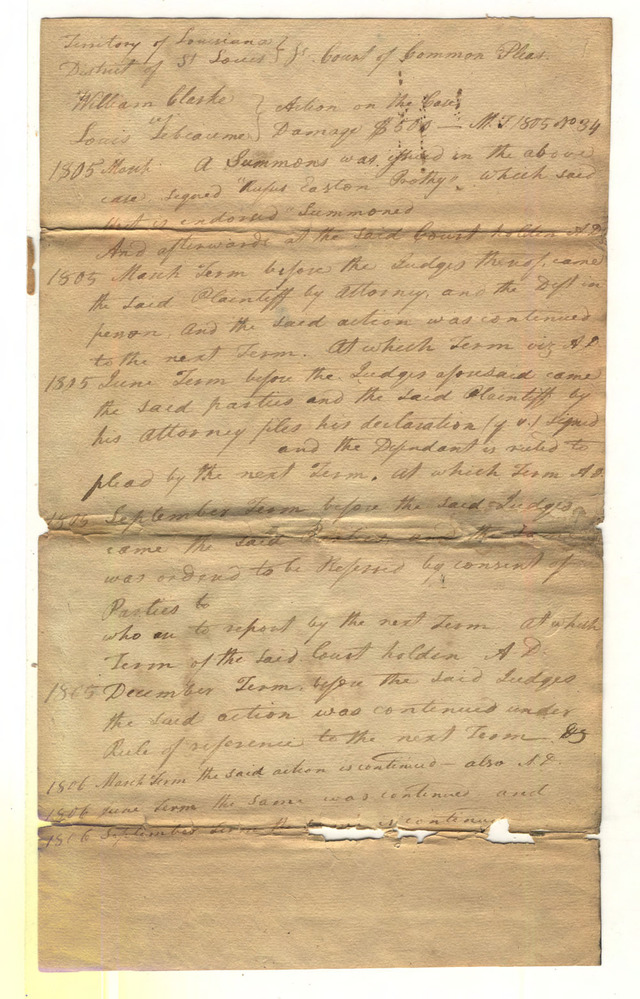 Territory of Louisiana }
District of St Louis } Ss. Court of Common Pleas.
William Clarke }
vs } Action on the Case
Louis Lebeaume } Damage $500 — M. T 1805 No 34
1805 March A Summons was issued in the above
case signed "Rufus Easton Prothy". which said
Writ is endorsed "Summoned
And afterwards at the said Court holden A D.
1805 March Term before the Judges thereof, came
the said Plaintiff by Attorney, and the Deft in
person. And the said action was continued
to the next Term. At which Term viz A D
1805 June Term before the Judges aforesaid came
the said parties and the said Plaintiff by
his Attorney files his declaration (q v.) signed
and the Defendant is ruled to
plead by the next Term. at which Term A D.
1805 September Term before the said Judges
came the said Parties and the
was ordered to be Referred by consent of
Parties to
who are to report by the next Term at which
Term of the said Court holden A D.
1805 December Term, before the said Judges
the said action was continued under
Rule of reference to the next Term
1806 March Term the said action is continued — also A D.
1806 June Term the same was continued and
1806 September Term the is continued